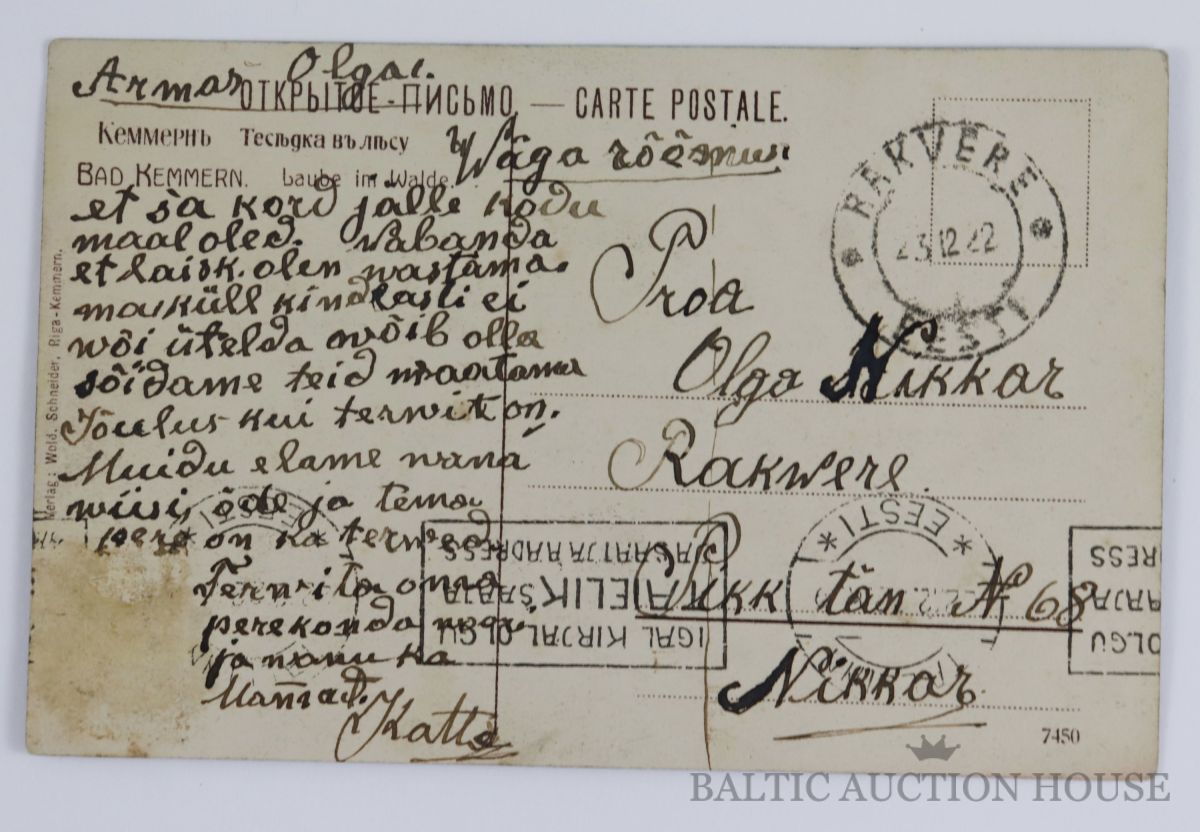 Armas Olga!
ОТКРЫТОЕ-ПИСЬМО, — CARTE POSTALE.
Кеммернъ Тесѣдка въ лѣсу
BAD KEMMERN. Laube im Walde.
Wäga rõõmus
et sa kord jälle kodu
maal oled. Wabanda
et laisk olen wastama.
ma küll kindlasti ei
wõi ütelda wõib olla
sõidame teid waatama
Jõulus kui terwit on.
Muidu elame wana
wiisi, õde ja tema
pere on ka terwed
Terwita oma
perekonda
ja ka
Katta
Verlag: Wold. Schneider, Riga-Kemmern.
RAKVERE
23 12 22
EESTI
Proa
Olga Nikkar
Rakwere.
Pikk tän № 68
Nikkar.
EESTI
IGAL KIRJAL OLGU
TÄIELIK SAAJA
JA SAATJA AADRESS
OLGU
SAAJA
RESS
7450
BALTIC AUCTION HOUSE